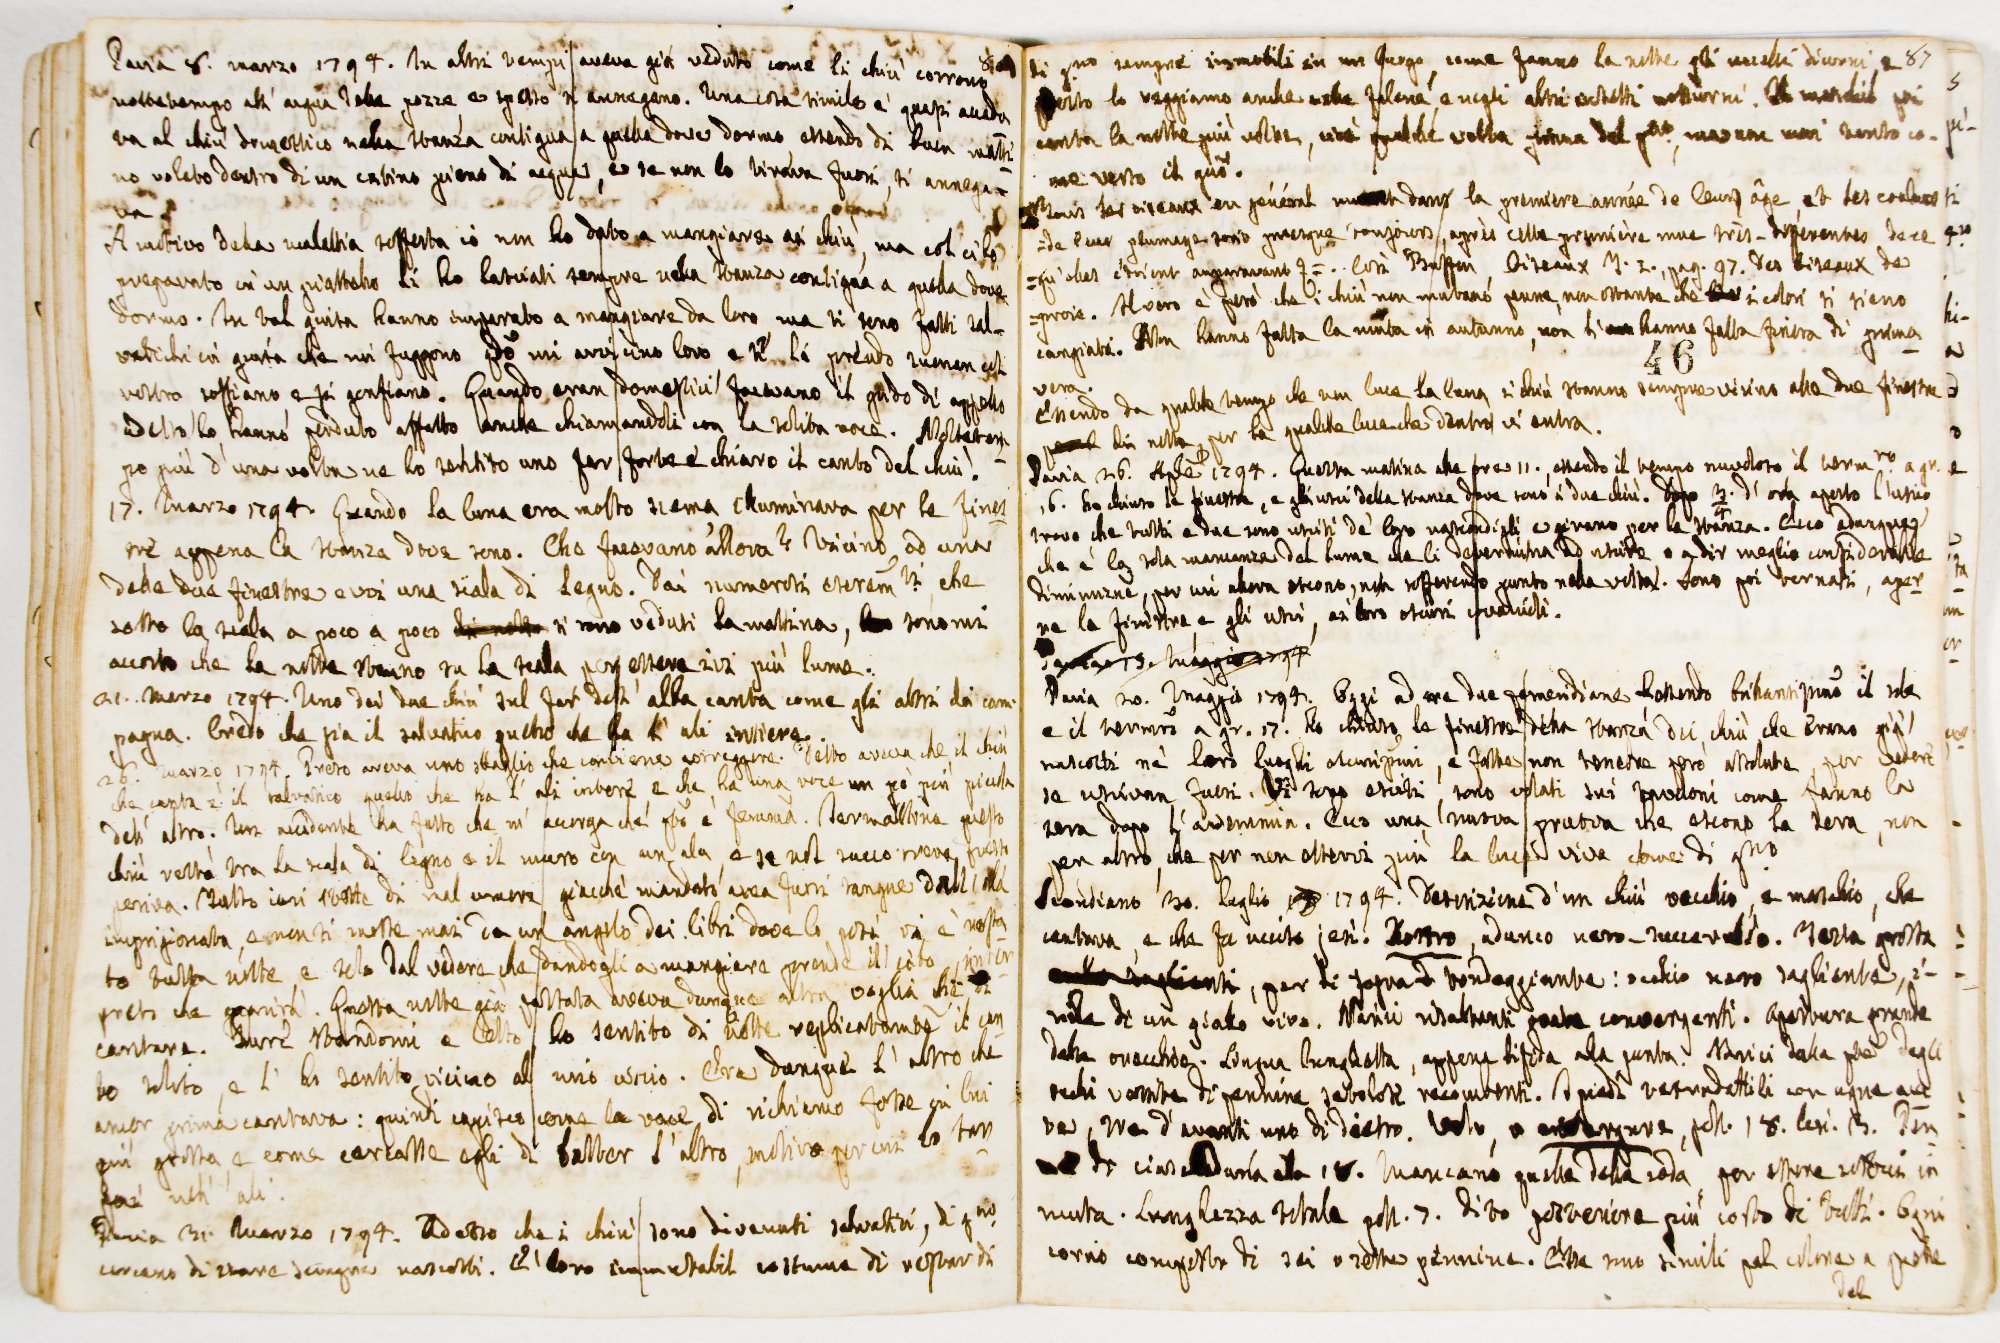 Pavia 8. marzo 1794. In altri tempi aveva già veduto come li chiù corrono
nottetempo all' acqua delle pozze e spesso si annegano. Una cosa simile è quasi accadu
ta al chiù domestico nella stanza contigua a quella dove dormo essendo di buon matti
no volato dentro di un catino pieno di acqua, e se non lo tirava fuori, si annega=
va.
A motivo della malattia sofferta io non ho dato a mangiare ai chiù, ma col cibo
preparato in un piattello li ho lasciati sempre nella stanza contigua a quella dove
dormo. In tal guisa hanno imparato a mangiare da loro, ma si sono fatti sel-
vatichi in guisa che mi fuggono qdo mi avvicino loro e se li prendo suonan col
rostro soffiano e si gonfiano. Quando eran domestici facevano il grido di appello
adesso lo hanno perduto affatto anche chiamandoli con la solita voce. Nottetem-
po più d'una volta ne ho sentito uno far forte e chiaro il canto del chiù.
17. Marzo 1794. Quando la luna era molto scema illuminava per le fines
tre appena la stanza dove sono. Che facevano allora? Vicino ad una
delle due finestre evvi una scala di legno. Dai numerosi escrem.ti che
sotto la scala a poco a poco si sono veduti la mattina, sonomi
accorto che la notte stanno su la scala per essere ivi più lume.
21. Marzo 1794. Uno dei due chiù sul far dell' alba canta come gli altri di cam-
pagna. Credo che sia il salvatico quello che ha l' ali intiere.
26. Marzo 1794. Preso aveva uno sbaglio che conviene correggere. Detto aveva che il chiù
che canta è il salvatico quello che ha l' ali intere e che ha una voce un po più piccola
dell' altro. Un accidente ha fatto che m' accorga che qto è femina. Stamattina questo
chiù restò tra la scala di legno e il muro con un'ala, e se nol soccorreva presto
periva. Tutto ieri stette di mal umore giacché mandato avea fuori sangue dall' ala
imprigionata, e non si mosse mai da un angolo dei libri dove lo posi vi è resta
to tutta notte e solo dal vedere che dandogli a mangiare prende il cibo inter
preto che guarirà. Questa notte già passata aveva dunque altra voglia che di
cantare. Pure standomi a letto ho sentito di notte replicatamente il can
to solito, e l' ho sentito vicino al mio uscio. Era dunque l' altro che
ancor prima cantava: quindi capisco come la voce di richiamo fosse in lui
più grossa e come cercasse egli di batter l'altro, motivo per cui lo tar
pai nell' ali.
Pavia 31. Marzo 1794. Adesso che i chiù sono divenuti salvatici, di g.no
cercano di stare sempre nascosti. È loro immutabil costume di restar di

87
di g.no sempre immobili in un luogo come fanno la notte gli uccelli diurni, e
questo lo veggiamo anche nelle falene e negli altri insetti notturni. Il maschio poi
canta la notte più volte, e qualche volta prima del g.no, ma non mai tanto co-
me verso il g.no.
"Tous les oiseaux en général muent dans la première année de leur âge, et les couleurs
=de leur plumage sont presque toujours, après cette première mue très-différentes de ce
=qu'elles étoient auparavant=. Così Buffon, Oiseaux T. 2., pag. 97. Des Oiseaux de
=proie. Il vero è però che i chiù non mutano penne, non ostante che i colori si sieno
cangiati. Non hanno fatta la muta in autunno, non l' hanno fatta finora di prima
vera.
46
Essendo da qualche tempo che non luce la luna i chiù stanno sempre vicino alle due finestre
di notte per la qualche luce che dentro vi entra.
Pavia 26. Aple 1794. Questa matina alle ore 11., essendo il tempo nuvoloso il term.ro a gr.
16. ho chiuso le finestre, e gli usci della stanza dove sono i due chiù. Dopo 3/4 d' ora aperto l'uscio
trovo che tutti e due sono usciti de' loro nascondigli e girano per la stanza. Ecco adunque
che è la sola mancanza del lume che li determina ad uscire o a dir meglio considerabile
diminuzne, per cui allora escono, non soffrendo punto nella vista. Sono poi tornati, aper
te le finestre e gli usci, ai loro oscuri covacioli.
Pavia 19. Maggio 1794
Pavia 20. Maggio 1794. Oggi ad ore due pomeridiane essendo brillantissimo il sole
e il termro a gr. 17. ho chiuso le finestre della stanza dei chiù che erano già
nascosti ne' loro luoghi oscurissimi, e fatte non tenebre però assolute per vedere
se uscivan fuori. Vi sono esciti, sono volati sui travicioni come fanno la
sera dopo l' avemmaria. Ecco una nuova pruova che escono la sera, non
per altro, che per non esservi più la luce viva come di g.no
Scandiano 30. Luglio 1794. Descrizione d'un chiù vecchio, e maschio, che
cantava, e che fu ucciso jeri. Rostro, adunco nero-succeruleo. Testa grossa
, per di sopra tondeggiante: occhio nero sagliente, i-
ride di un giallo vivo. Narici risaltanti poste convergenti. Apertura grande
delle orecchie. Lingua lunghetta, appena bifida alla punta. Narici dalla pte degli
occhi vestite di pennine setolose ricoprenti. I piedi retrodattili con ugne acu
te, tre d'avanti uno di dietro. Volo, o envergure, poll. 18. lin. 3. Pen
di ciascun'ala 18. Mancano quelle della coda, per essere uccisi in
muta. Lunghezza totale poll. 7. Dito posteriore più corto di tutti. Ogni
corno composto di sei o sette pennine. Esse sono simili pel colore a quelle
del